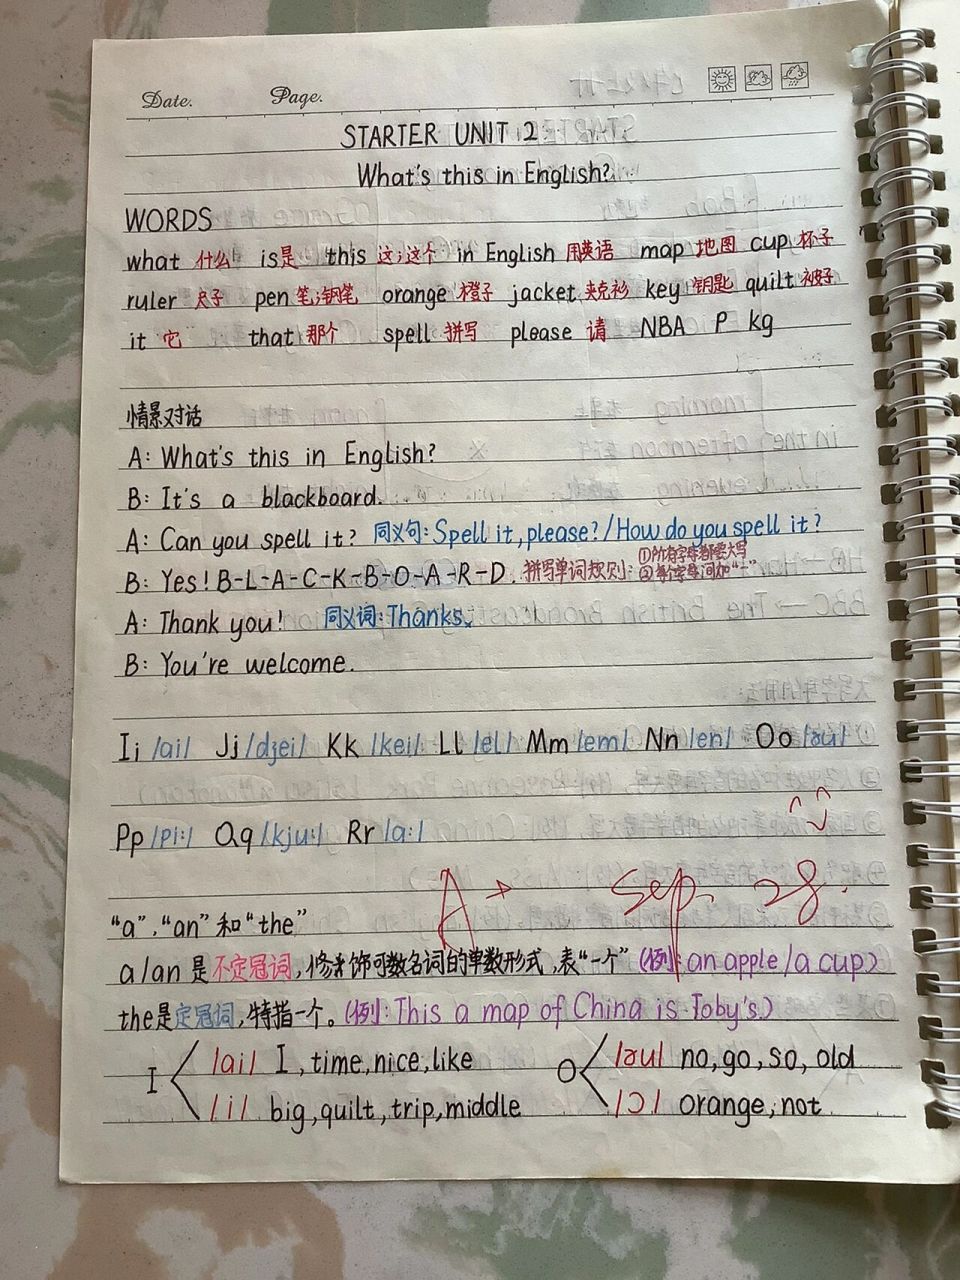 Date. Page.
STARTER UNIT 2
What's this in English?
WORDS
what 什么 is是 this 这;这个 in English 用英语 map 地图 cup 杯子
ruler 尺子 pen 笔;钢笔 orange 橙子 jacket 夹克衫 key 钥匙 quilt 被子
it 它 that 那个 spell 拼写 please 请 NBA P kg
情景对话
A: What's this in English?
B: It's a blackboard.
A: Can you spell it? 同义句: Spell it, please? / How do you spell it?
B: Yes! B-L-A-C-K-B-O-A-R-D. 拼写单词规则: ①所有字母都要大写
②每个字母间加“-”
A: Thank you! 同义词: Thanks.
B: You're welcome.
Ii /ai/ Jj /dʒei/ Kk /kei/ Ll /el/ Mm /em/ Nn /en/ Oo /əu/
Pp /pi:/ Qq /kju:/ Rr /a:/
A+ Sep. 28.
“a”、“an” 和 “the”
a/an 是 不定冠词, 修饰可数名词的单数形式, 表“一个” (例: an apple / a cup)
the是定冠词, 特指一个。(例: This a map of China is Toby's.)
I /ai/ I, time, nice, like O /əu/ no, go, so, old
/i/ big, quilt, trip, middle /ɔ/ orange, not